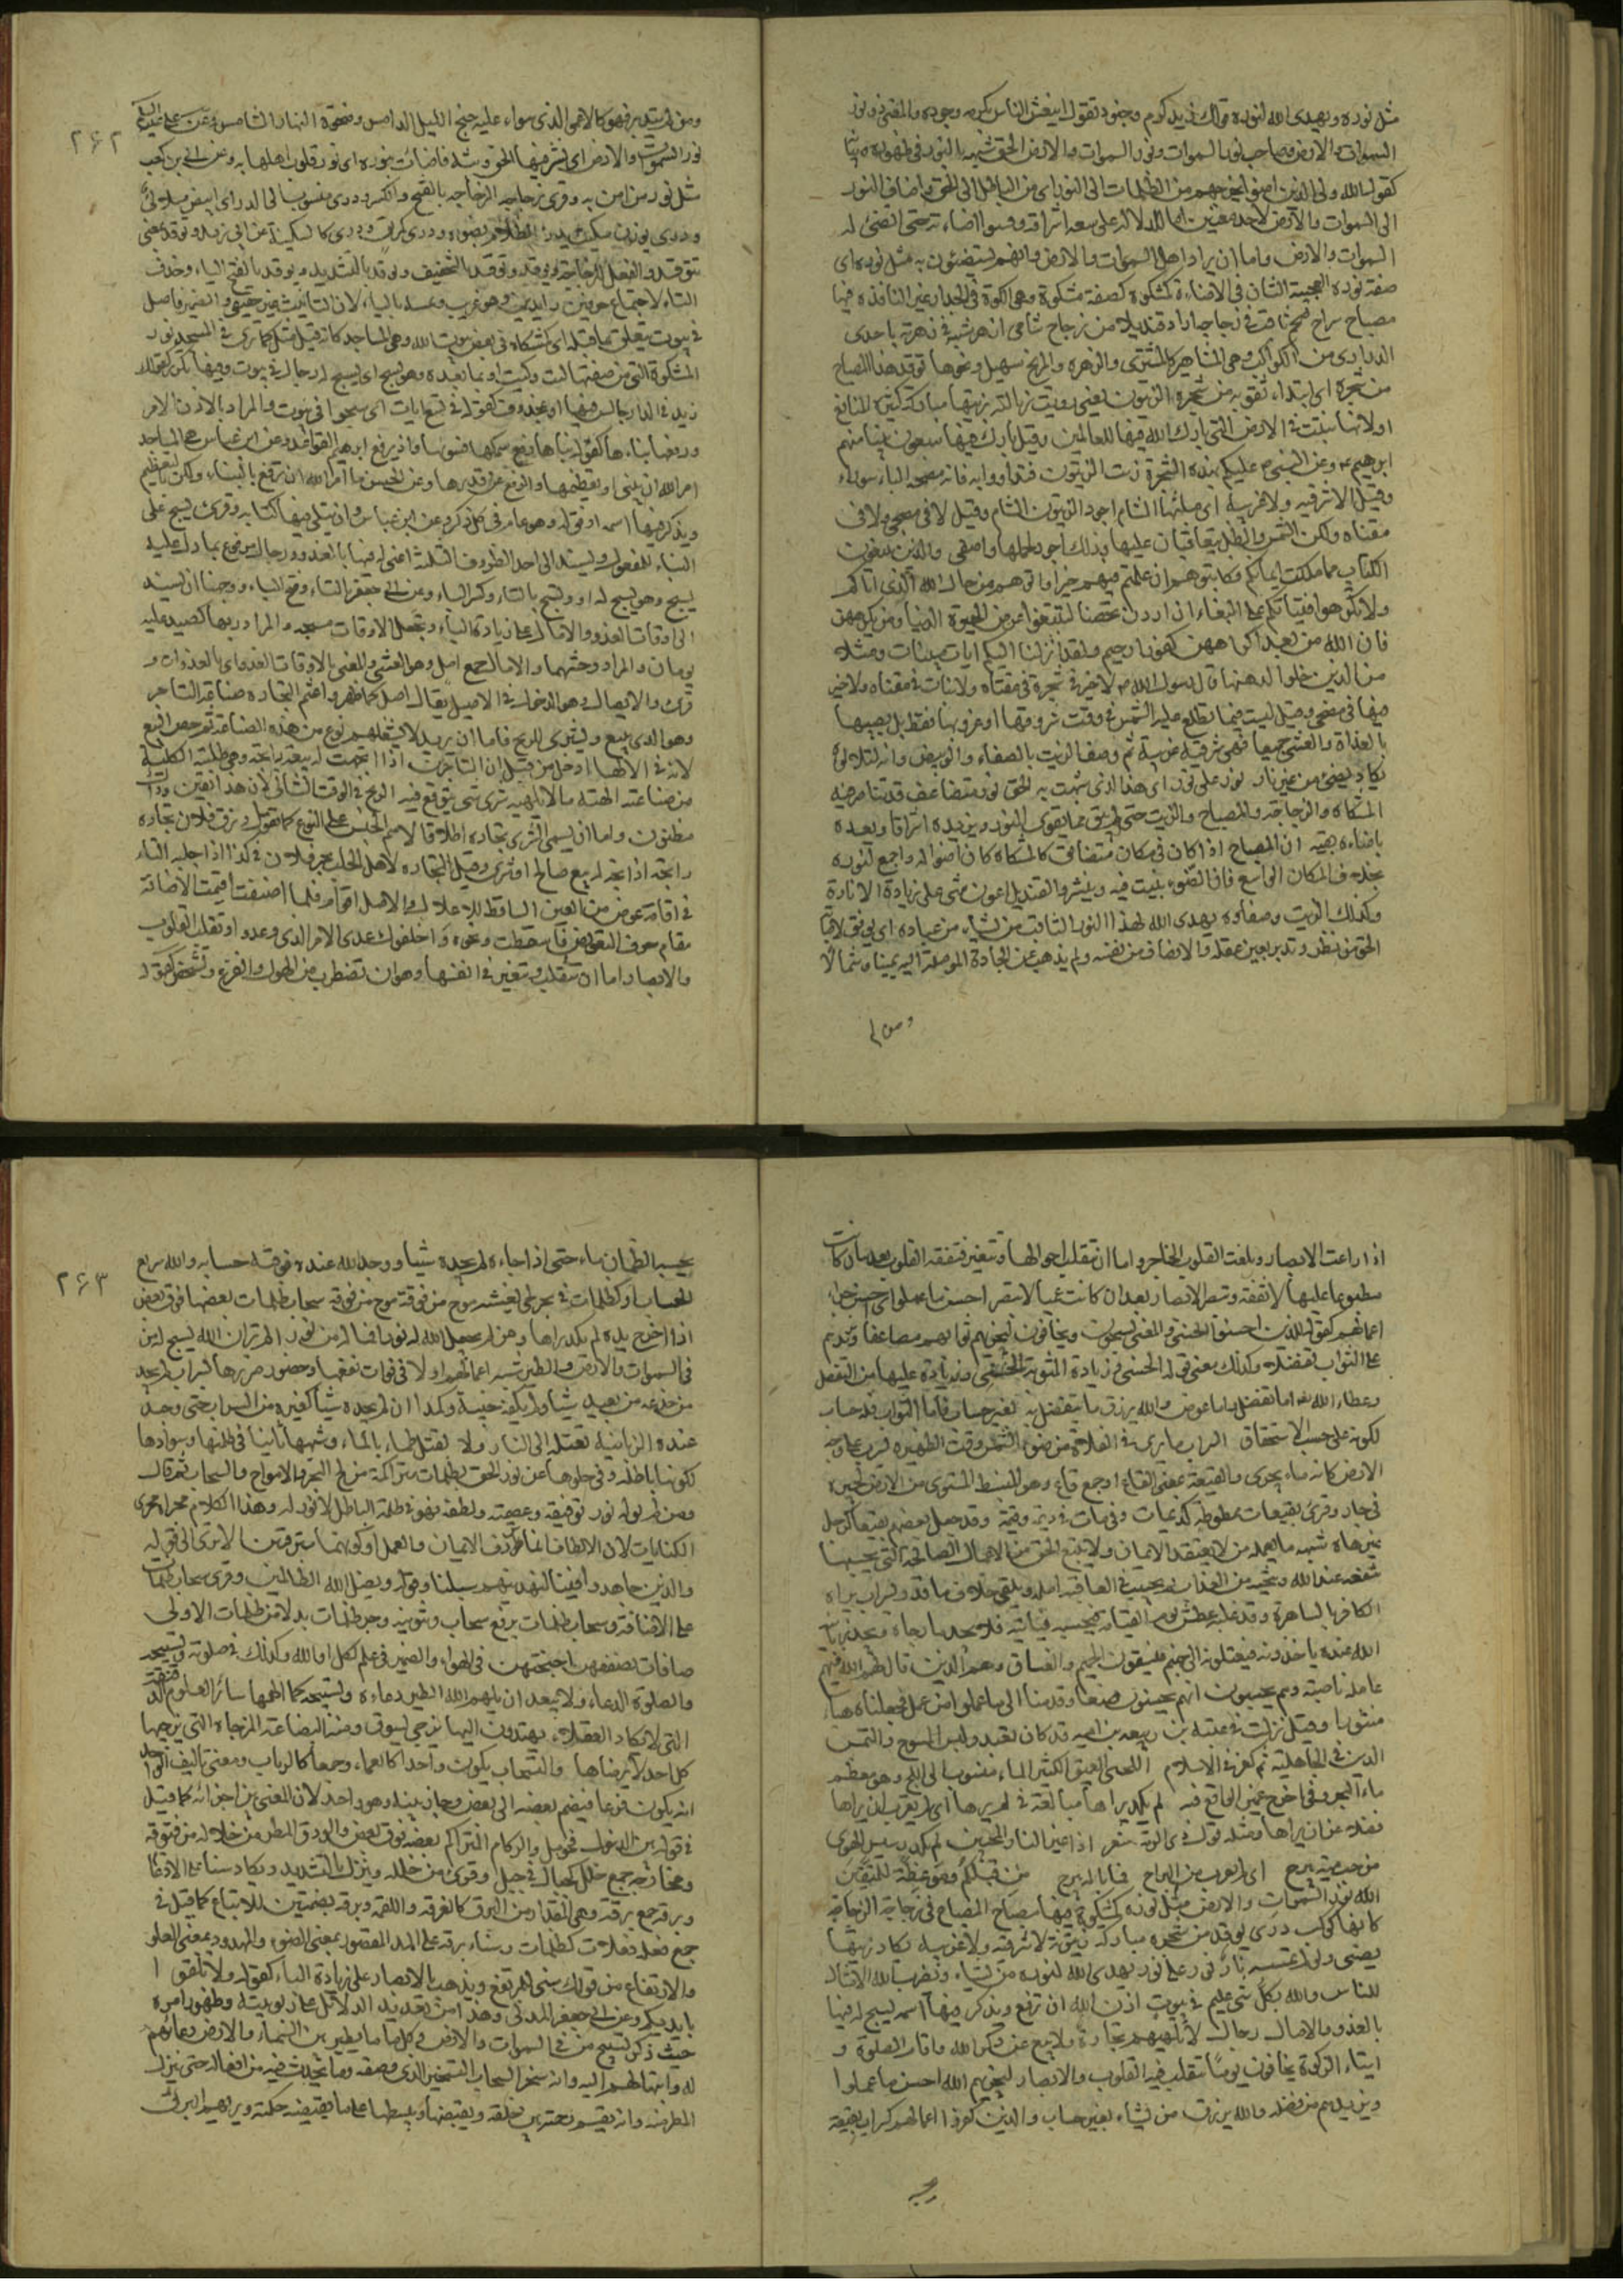 مثل نوره ويهدى الله لنوره قولك زيد كرم وجود ثم تقول ينعش الناس بكرمه وجوده والمعنى ذو نور
السموات والارض وصاحب نور السموات ونور السموات والارض الحق شبهه بالنور فى ظهوره وبيانه
كقوله الله ولى الذين امنوا يخرجهم من الظلمات الى النور اى من الباطل الى الحق واضاف النور
الى السموات والارض لاحد معنيين اما للدلالة على سعة اشراقه وفشو اضاءته حتى تضىء له
السموات والارض واما ان يراد اهل السموات والارض وانهم يستضيئون به مثل نوره اى
صفة نوره العجيبة الشان فى الاضاءة كمشكوة كصفة مشكوة وهى الكوة فى الجدار غير النافذة فيها
مصباح سراج ضخم ثاقب فى زجاجة اراد قنديلا من زجاج شامى ازهر شبهه فى زهرته باحدى
الدرارى من الكواكب وهى المشاهير كالمشترى والزهرة والمريخ وسهيل ونحوها توقد هذا المصباح
من شجرة اى ابتداء ثقوبه من شجرة الزيتون يعنى رويت ذبالته بزيتها مباركة كثيرة المنافع
او لانها نبتت فى الارض التى بارك الله فيها للعالمين وقيل بارك فيها سبعون نبيا منهم
ابرهيم وعن النبى عليكم بهذه الشجرة زيت الزيتون فتداووا به فانه مصحة الباسور
وقيل لا شرقية ولا غربية اى منبتها الشام اجود الزيتون زيتون الشام وقيل لا فى مضحى ولا فى
مقناة ولكن الشمس والظل يتعاقبان عليها وذلك اجود لحملها واصفى والذين يبتغون
الكتاب مما ملكت ايمانكم فكاتبوهم ان علمتم فيهم خيرا واتوهم من مال الله الذى اتاكم
ولا تكرهوا فتياتكم على البغاء ان اردن تحصنا لتبتغوا عرض الحيوة الدنيا ومن يكرههن
فان الله من بعد اكراههن غفور رحيم ولقد انزلنا اليكم ايات مبينات ومثلا
من الذين خلوا قال رسول الله لا خير فى شجرة فى مقناة ولا نبات فى مقناة ولا خير
فيهما فى مضحى وقيل ليست مما تطلع عليه الشمس فى وقت شروقها او غروبها فقط بل يصيبها
بالغداة والعشى جميعا فهى شرقية غربية ثم وصف الزيت بالصفاء والوبيض وانه لتلألؤه
يكاد يضىء من غير نار نور على نور اى هذا الذى شبهت به الحق نور متضاعف قد تناصر فيه
المشكاة والزجاجة والمصباح والزيت حتى لم يبق مما يقوى النور ويزيده اشراقا ويمده
باضاءة بقية ان المصباح اذا كان فى مكان متضائق كالمشكاة كان اضوا له واجمع لنوره
بخلاف المكان الواسع فان الضوء ينبث فيه وينتشر والقنديل اعون شىء على زيادة الانارة
وكذلك الزيت وصفاؤه يهدى الله لهذا النور الثاقب من يشاء من عباده اى يوفق لاصابة
الحق من نظر وتدبر بعين عقله والانصاف من نفسه ولم يذهب عن الجادة الموصلة اليه يمينا وشمالا
ومن لم
ومن لم يتدبر فهو كالاعمى الذى سواء عليه جنح الليل الدامس وضحوة النهار الشامس وعن على
٢٦٢
نور السموات والارض اى نشر فيها الحق وبثه فاضائت بنوره اى نور قلوب اهلها به وعن ابى بن كعب
مثل نور من امن به وقرى زجاجة الزجاجة بالفتح والكسر ودرى منسوب الى الدر اى ابيض متلألئ
تتوقد والفعل للزجاجة ويوقد وتوقد بالتخفيف ويوقد بالتشديد ويوقد بفتح الياء وحذف
التاء لاجتماع حرفين زايدين وهو غريب ويمسه بالياء لان التانيث غير حقيقى والضمير فاصل
فى بيوت يتعلق بما قبله اى كمشكاة فى بعض بيوت الله وهى المساجد كانه قيل مثل نوره كما يرى فى المسجد نور
المشكوة التى من صفتها كيت وكيت او بما بعده وهو يسبح اى يسبح له رجال فى بيوت وفيها تكرير كقولك
زيد فى الدار جالس فيها او بمحذوف كقوله فى تسع ايات اى سبحوا فى بيوت والمراد بالاذن الامر
ورفعها بناءها كقوله بناها رفع سمكها فسويها واذ يرفع ابرهيم القواعد وعن ابن عباس هى المساجد
امر الله ان تبنى او تعظيمها والرفع من قدرها وعن الحسن ما امر الله ان ترفع بالبناء ولكن بالتعظيم
ويذكر فيها اسمه اوفق له وهو عام فى كل ذكر وعن ابن عباس وان يتلى فيها كتابه وقرى يسبح على
البناء للمفعول ويسند الى احد الظروف الثلثة اعنى له فيها بالغدو ورجال مرفوع بما دل عليه
يسبح وهو يسبح له او تسبح بالتاء وكسر الباء وعن ابى جعفر بالتاء وفتح الباء ووجهها ان يسند
الى اوقات الغدو والاصال على زيادة الباء وتجعل الاوقات مسبحة والمراد ربها كصيد عليه
يومان والمراد وحشهما والاصال جمع اصل وهو العشى والمعنى باوقات الغدو اى بالغدوات و
قرى والايصال وهو الدخول فى الاصيل يقال اصل كاظهر واعتم التجارة صناعة التاجر
وهو الذى يبيع ويشترى للربح فاما ان يريد لا يشغلهم نوع من هذه الصناعة ثم خص البيع
لانه فى الالهاء ادخل من قبل ان التاجر اذا اتجهت له بيعة رابحة وهى طلبته الكلية
من صناعته الهته ما لا يلهيه شرى شىء يتوقع فيه الربح فى الوقت الثانى لان هذا يقين وذاك
مظنون واما ان يسمى الشرى تجارة اطلاقا لاسم الجنس على النوع كما تقول رزق فلان تجارة
رابحة اذا اتجه له بيع صالح او شرى وقيل التجارة لاهل الجلب تجر فلان فى كذا اذا جلبه التاء
فى اقامة عوض من العين الساقطة للاعلال والاصل اقوام فلما اضيفت اقيمت الاضافة
مقام حرف التعويض فاسقطت ونحوه واخلفوك عدى الامر الذى وعدوا وتقلب القلوب
والابصار اما ان تتقلب وتتغير فى انفسها وهو ان تضطرب من الهول والفزع وتشخص كقوله
اذا زاغت الابصار وبلغت القلوب الحناجر واما ان تتقلب احوالها وتتغير فتفقه القلوب بعد ان كانت
مطبوعا عليها لا تفقه وتبصر الابصار بعد ان كانت عميا لا تبصر احسن ما عملوا اى احسن جزاء
اعمالهم كقوله للذين احسنوا الحسنى والمعنى يسبحون ويخافون ليجزيهم ثوابهم مضاعفا ويزيدهم
على الثواب تفضلا وكذلك معنى قوله الحسنى وزيادة المثوبة الحسنى وزيادة عليها من التفضل
وعطاء الله اما تفضل واما عوض والله يرزق ما يتفضل به بغير حساب فاما الثواب فله حساب
لكونه على حسب الاستحقاق السراب ما يرى فى الفلاة من ضوء الشمس وقت الظهيرة يسرب على وجه
الارض كانه ماء يجرى والقيعة بمعنى القاع او جمع قاع وهو المنبسط المستوى من الارض كجيرة
فى جار وقرى بقيعات ممطوطة كديمات وقيمات فى ديمة وقيمة وقد جعل بعضهم بقيعاة كرجل
عزهاة شبه ما يعمله من لا يعتقد الايمان ولا يتبع الحق من الاعمال الصالحة التى يحسبها
تنفعه عند الله وتنجيه من العذاب ثم يخيب فى العاقبة امله ويلقى خلاف ما قدر بسراب يراه
الكافر بالساهرة وقد غلبه عطش يوم القيامة فيحسبه ماء فياتيه فلا يجد ما رجاه ويجد زبانية
الله عنده ياخذونه فيعتلونه الى جهنم فيسقونه الحميم والغساق وهم الذين قال الله فيهم
عاملة ناصبة وهم يحسبون انهم يحسنون صنعا وقدمنا الى ما عملوا من عمل فجعلناه هباء
منثورا وقيل نزلت فى عتبة بن ربيعة بن امية قد كان تعبد ولبس المسوح والتمس
الدين فى الجاهلية ثم كفر فى الاسلام اللجى العميق الكثير الماء منسوب الى اللج وهو معظم
ماء البحر وفى اخرج ضمير الواقع فيه لم يكد يراها مبالغة فى لم يرها اى لم يقرب ان يراها
فضلا عن ان يراها ومثله قول ذى الرمة شعر اذا غير الناى المحبين لم يكد رسيس الهوى
من حب مية يبرح اى لم يقرب من البراح فما باله يبرح من قبلكم وموعظة للمتقين
الله نور السموات والارض مثل نوره كمشكوة فيها مصباح المصباح فى زجاجة الزجاجة
كانها كوكب درى يوقد من شجرة مباركة زيتونة لا شرقية ولا غربية يكاد زيتها
يضىء ولو لم تمسسه نار نور على نور يهدى الله لنوره من يشاء ويضرب الله الامثال
للناس والله بكل شىء عليم فى بيوت اذن الله ان ترفع ويذكر فيها اسمه يسبح له فيها
بالغدو والاصال رجال لا تلهيهم تجارة ولا بيع عن ذكر الله واقام الصلوة و
ايتاء الزكوة يخافون يوما تتقلب فيه القلوب والابصار ليجزيهم الله احسن ما عملوا
ويزيدهم من فضله والله يرزق من يشاء بغير حساب والذين كفروا اعمالهم كسراب بقيعة
يحسبه
يحسبه الظمان ماء حتى اذا جاءه لم يجده شيئا ووجد الله عنده فوفيه حسابه والله سريع
٢٦٣
الحساب او كظلمات فى بحر لجى يغشيه موج من فوقه موج من فوقه سحاب ظلمات بعضها فوق بعض
اذا اخرج يده لم يكد يراها ومن لم يجعل الله له نورا فما له من نور الم تر ان الله يسبح له من
فى السموات والارض والطير شبه اعمالهم اولا فى فوات نفعها وحضور ضررها بسراب لم يجد
من خدعه من بعيد شيئا ولم يكفه خيبة وكمدا ان لم يجده شيئا كغيره من السراب حتى وجد
عنده الزبانية تعتله الى النار ولا يقتل ظماءه بالماء وشبهها ثانيا فى ظلمتها وسوادها
لكونها باطلة وفى خلوها عن نور الحق بظلمات متراكمة من لج البحر والامواج والسحاب ثم قال
ومن لم يوله نور توفيقه وعصمته ولطفه فهو فى ظلمة الباطل لا نور له وهذا الكلام مجراه مجرى
الكنايات لان الالطاف انما تردف الايمان والعمل او كونهما مترقبين الا ترى الى قوله
والذين جاهدوا فينا لنهدينهم سبلنا وقوله ويضل الله الظالمين وقرى سحاب ظلمات
على الاضافة وسحاب ظلمات برفع سحاب وتنوينه وجر ظلمات بدلا من ظلمات الاولى
صافات يصففن اجنحتهن فى الهواء والضمير فى علم لكل او لله وكذلك فى صلوته وتسبيحه
والصلوة الدعاء ولا يبعد ان يلهم الله الطير دعاءه وتسبيحه كما الهمها سائر العلوم الدقيقة
التى لا يكاد العقلاء يهتدون اليها يزجى يسوق ومنه البضاعة المزجاة التى يزجيها
كل احد لا يرضاها والسحاب يكون واحدا كالعماء وجمعا كالرباب ومعنى تاليف الواحد
انه يكون قزعا فيضم بعضه الى بعض وجاز بينه وهو واحد لان المعنى بين اجزائه كما قيل
فى قوله بين الدخول فحومل والركام المتراكم بعضه فوق بعض والودق المطر من خلاله من فتوقه
ومخارجه جمع خلل كجبال فى جبل وقرى من خلله وينزل بالتشديد ويكاد سنا على الادغام
وبرقه جمع برقة وهى المقدار من البرق كالغرفة واللقمة وبرقه بضمتين للاتباع كما قيل فى
جمع فعلة فعلات كظلمات وسناء برقه على المد المقصور بمعنى الضوء والممدود بمعنى العلو
والارتفاع من قولك سنى للمرتفع ويذهب بالابصار على زيادة الباء كقوله ولا تلقوا
بايديكم وعن ابى جعفر المدنى وهذا من تعديد الدلائل على ربوبيته وظهور امره
حيث ذكر تسبيح من فى السموات والارض وكل ما يطير بين السماء والارض ودعاءهم
له وابتهالهم اليه وانه سخر السحاب التسخير الذى وصفه وما يحدث فيه من افعاله حتى ينزل
المطر منه وانه يقسم رحمته بين خلقه ويقبضها ويبسطها على ما يقتضيه حكمته ويريهم البرق